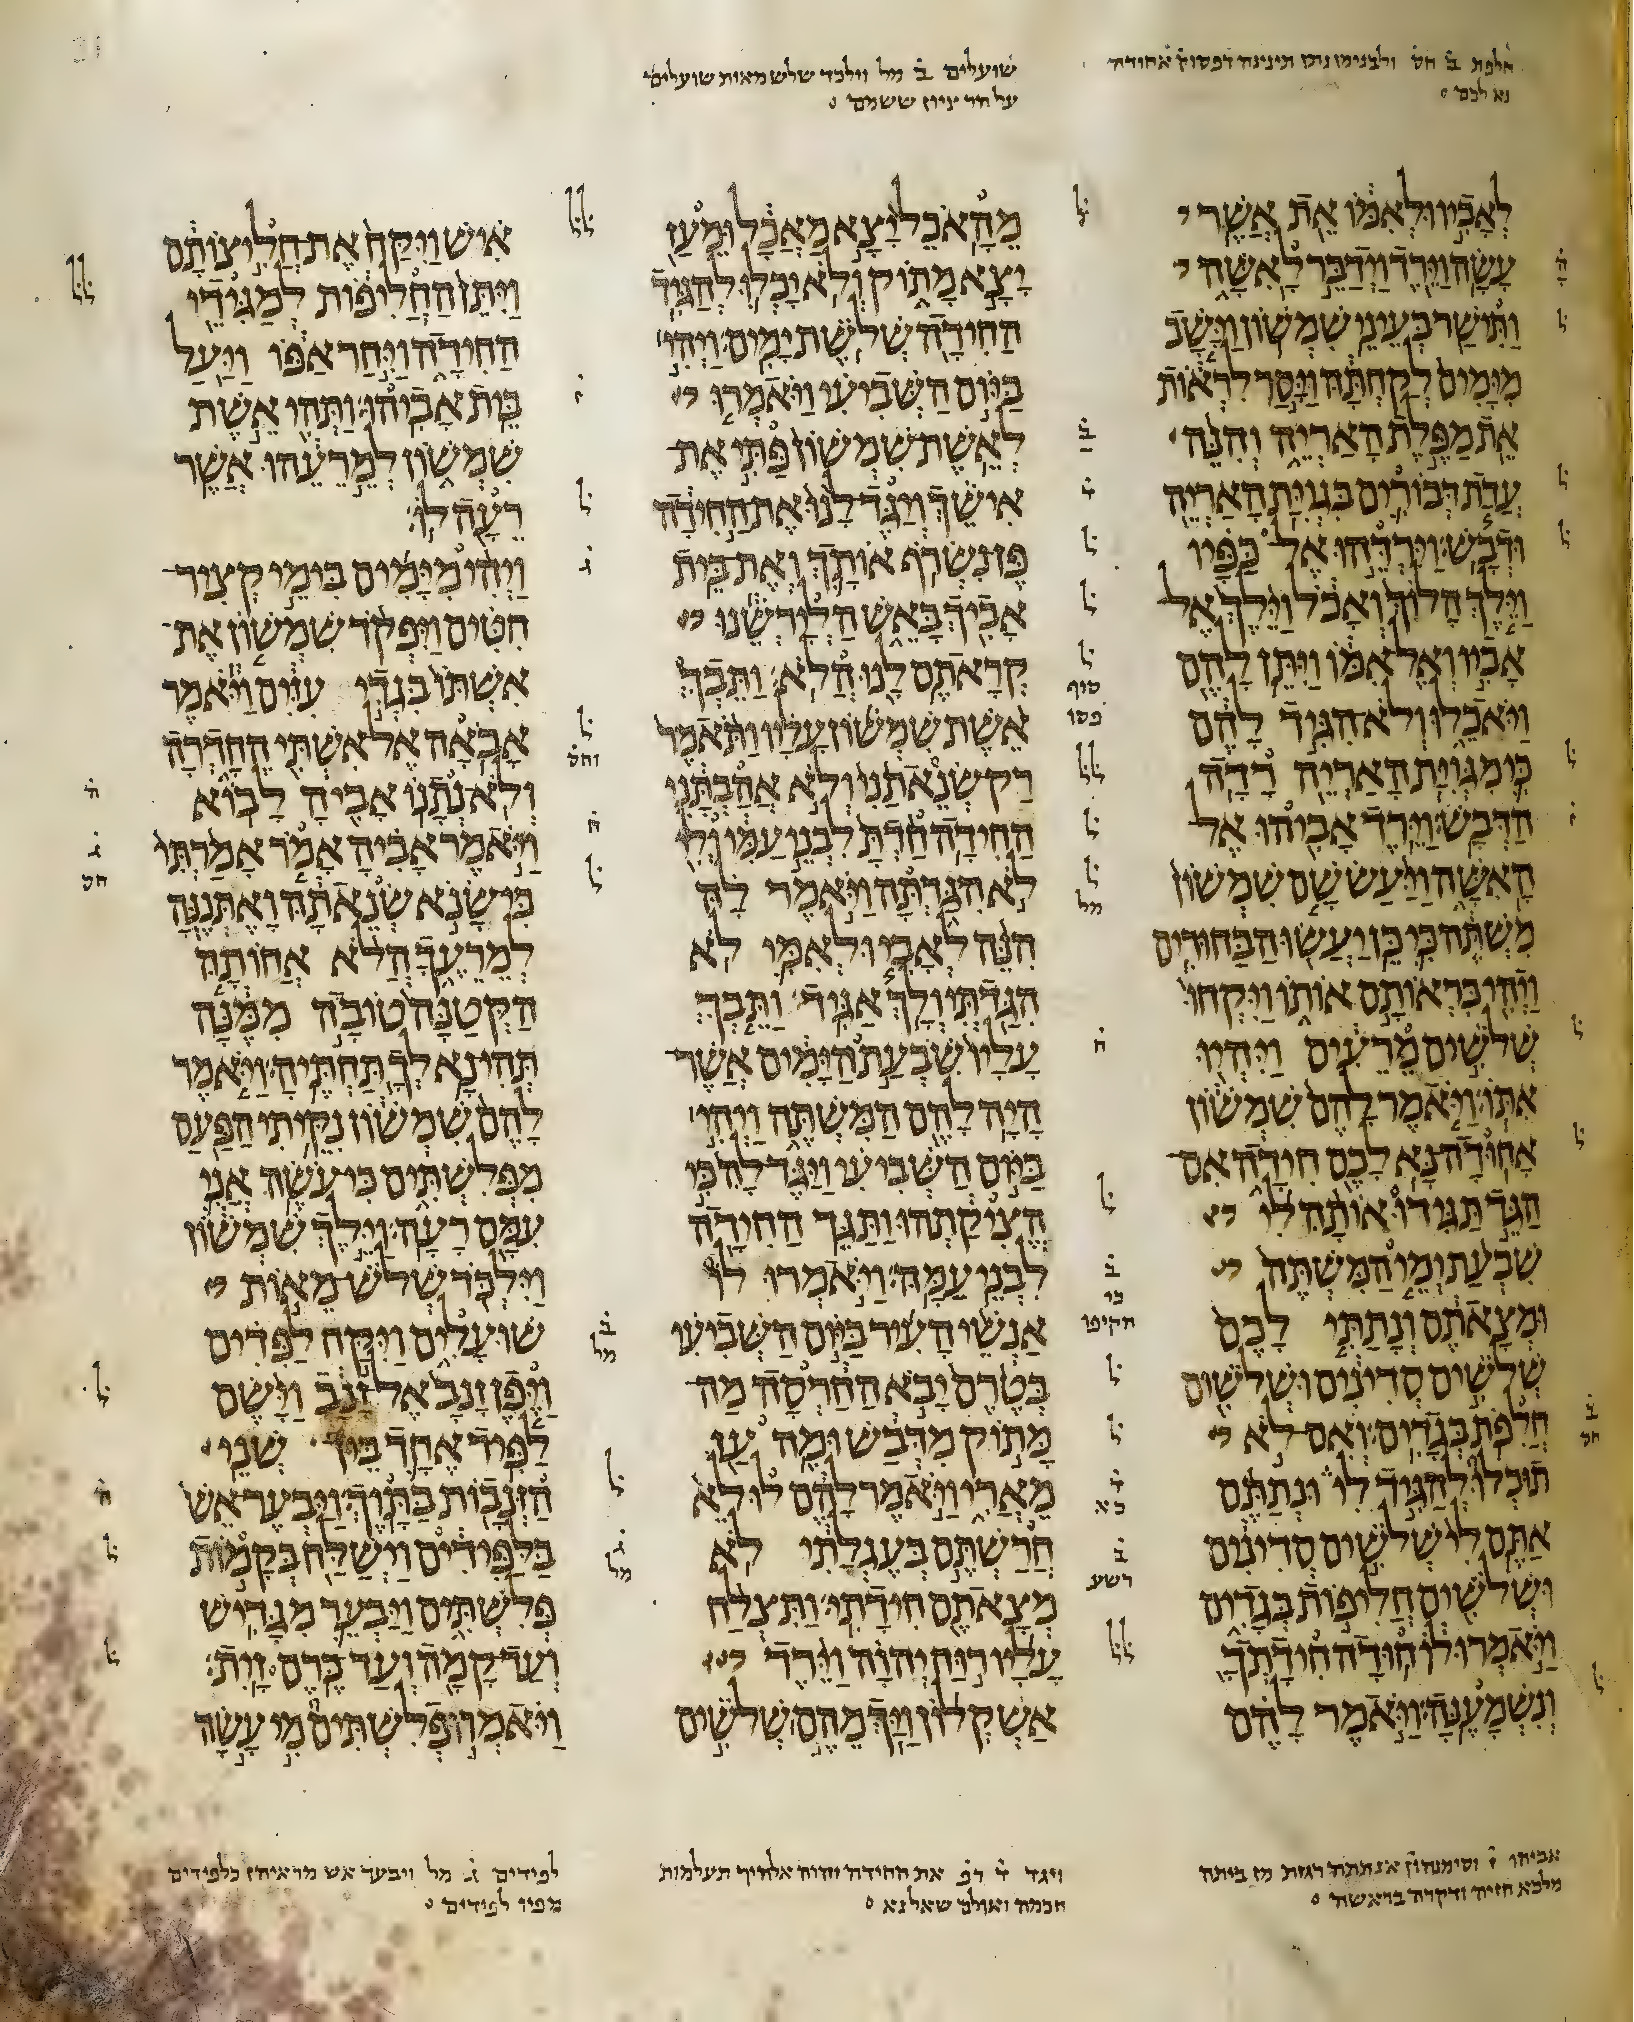 חלפת ב חס ולבנימן נתן תינינה דפסוק אחודה
נא לכם
שועלים ב מל וילכד שלש מאות שועלים
על הר ציון ששמם
לאביו ולאמו את אשר
עשה וירד וידבר לאשה
ותישר בעיני שמשון וישב
מימים לקחתה ויסר לראות
את מפלת האריה והנה
עדת דבורים בגוית האריה
ודבש וירדהו אל כפיו
וילך הלוך ואכל וילך אל
אביו ואל אמו ויתן להם
ויאכלו ולא הגיד להם
כי מגוית האריה רדה
הדבש וירד אביהו אל
האשה ויעש שם שמשון
משתה כי כן יעשו הבחורים
ויהי כראותם אותו ויקחו
שלשים מרעים ויהיו
אתו ויאמר להם שמשון
אחודה נא לכם חידה אם
הגד תגידו אותה לי
שבעת ימי המשתה
ומצאתם ונתתי לכם
שלשים סדינים ושלשים
חלפת בגדים ואם לא
תוכלו להגיד לי ונתתם
אתם לי שלשים סדינים
ושלשים חליפות בגדים
ויאמרו לו חודה חידתך
ונשמענה ויאמר להם
מהאכל יצא מאכל ומעז
יצא מתוק ולא יכלו להגיד
החידה שלשת ימים ויהי
ביום השביעי ויאמרו
לאשת שמשון פתי את
אישך ויגד לנו את החידה
פן נשרף אותך ואת בית
אביך באש הלירשנו
קראתם לנו הלא ותבך
אשת שמשון עליו ותאמר
רק שנאתני ולא אהבתני
החידה חדת לבני עמי ולי
לא הגדתה ויאמר לה
הנה לאבי ולאמי לא
הגדתי ולך אגיד ותבך
עליו שבעת הימים אשר
היה להם המשתה ויהי
ביום השביעי ויגד לה כי
הציקתהו ותגד החידה
לבני עמה ויאמרו לו
אנשי העיר ביום השביעי
בטרם יבא החרסה מה
מתוק מדבש ומה עז
מארי ויאמר להם לולא
חרשתם בעגלתי לא
מצאתם חידתי ותצלח
עליו רוח יהוה וירד
אשקלון ויך מהם שלשים
איש ויקח את חליצותם
ויתן החליפות למגידי
החידה ויחר אפו ויעל
בית אביהו ותהי אשת
שמשון למרעהו אשר
רעה לו
ויהי מימים בימי קציר
חטים ויפקד שמשון את
אשתו בגדי עזים ויאמר
אבאה אל אשתי החדרה
ולא נתנו אביה לבוא
ויאמר אביה אמר אמרתי
כי שנא שנאתה ואתננה
למרעך הלא אחותה
הקטנה טובה ממנה
תהי נא לך תחתיה ויאמר
להם שמשון נקיתי הפעם
מפלשתים כי עשה אני
עמם רעה וילך שמשון
וילכד שלש מאות
שועלים ויקח לפדים
ויפן זנב אל זנב וישם
לפיד אחד בין שני
הזנבות בתוך ויבער אש
בלפידים וישלח בקמות
פלשתים ויבער מגדיש
ועד קמה ועד כרם זית
ויאמרו פלשתים מי עשה
אביהו ז וסימנהון אנתתה רגזת מן ביתה
מלכא חזיה ודקרה בראשה
ויגד ד דפ את החידה וזוח אלהיך תעלמות
חכמה ואולם שאל נא
לפידים ג מל ויבער אש מראיהן כלפידים
מפיו לפידים